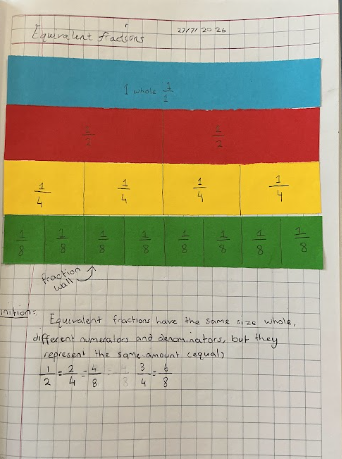 Equivalent fractions 27/7/2026
1 whole 1/1
1/2 1/2
1/4 1/4 1/4 1/4
1/8 1/8 1/8 1/8 1/8 1/8 1/8 1/8
fraction
wall
inition: Equivalent fractions have the same size whole,
different numerators and denominators, but they
represent the same amount (equal)
1/2 = 2/4 = 4/8 3/4 = 6/8